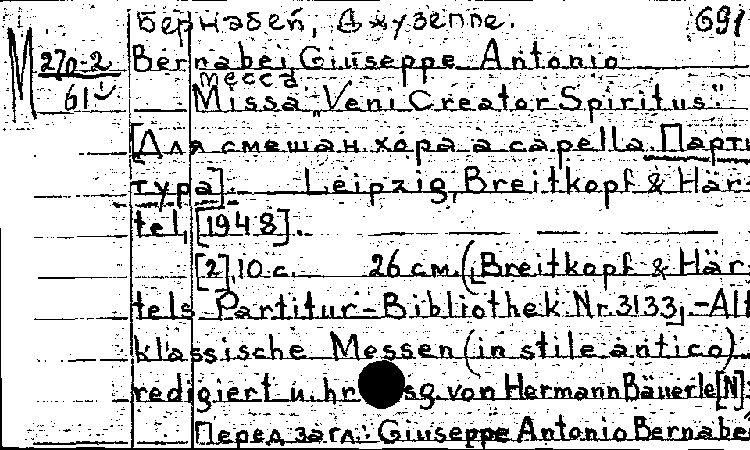 Бернабеи, Джузеппе. 691
М 270-2 Bernabei Giuseppe Antonio
месса
61 Missa „Veni Creator Spiritus“
[Для смешан. хора a capella. Парти
тура]. Leipzig, Breitkopf & Här-
tel, [1948].
[2], 10 с. 26 см. (Breitkopf & Här-
tels Partitur-Bibliothek Nr. 3133, - Alt
klassische Messen (in stile antico)
redigiert u. hr sg. von Hermann Bäuerle [N]:
Перед загл.: Giuseppe Antonio Bernabe